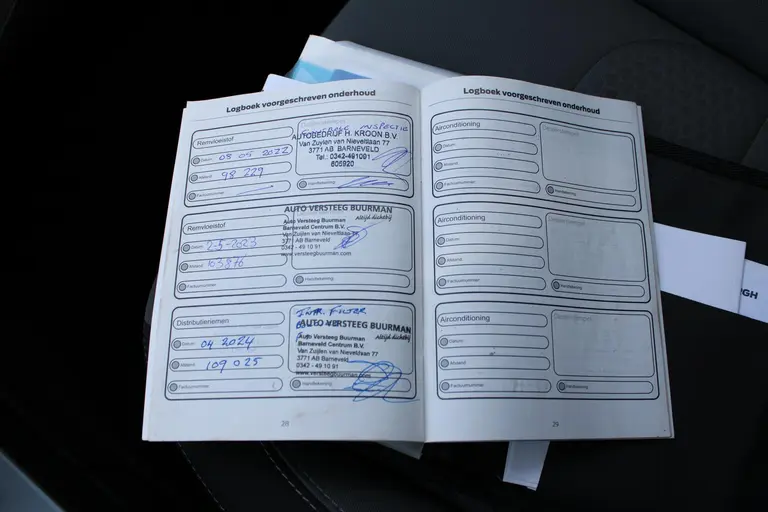 Logboek voorgeschreven onderhoud
Remvloeistof
Datum 08 05 2022
Afstand 98 229
Factuurnummer
AUTOBEDRIJF H. KROON B.V
Van Zuylen van Nieveltlaan 77
3771 AB BARNEVELD
Tel.: 0342-491091
605920
Handtekening
Remvloeistof
Datum 2-5-2023
Afstand 103876
Factuurnummer
AUTO VERSTEEG BUURMAN
Altijd dichtbij
Auto Versteeg Buurman
Barneveld Centrum B.V.
Van Zuijlen van Nieveltlaan 77
3771 AB Barneveld
0342 - 49 10 91
www.versteegbuurman.com
Handtekening
Distributieriemen
Datum 04 2024
Afstand 109 025
Factuurnummer
INTR. FILTER
AUTO VERSTEEG BUURMAN
Altijd dichtbij
Auto Versteeg Buurman
Barneveld Centrum B.V.
Van Zuijlen van Nieveltlaan 77
3771 AB Barneveld
0342 - 49 10 91
www.versteegbuurman.com
Handtekening
28
Logboek voorgeschreven onderhoud
Airconditioning
Datum
Afstand
Factuurnummer
Handtekening
Airconditioning
Datum
Afstand
Factuurnummer
Handtekening
Airconditioning
Datum
Afstand
Factuurnummer
Handtekening
29